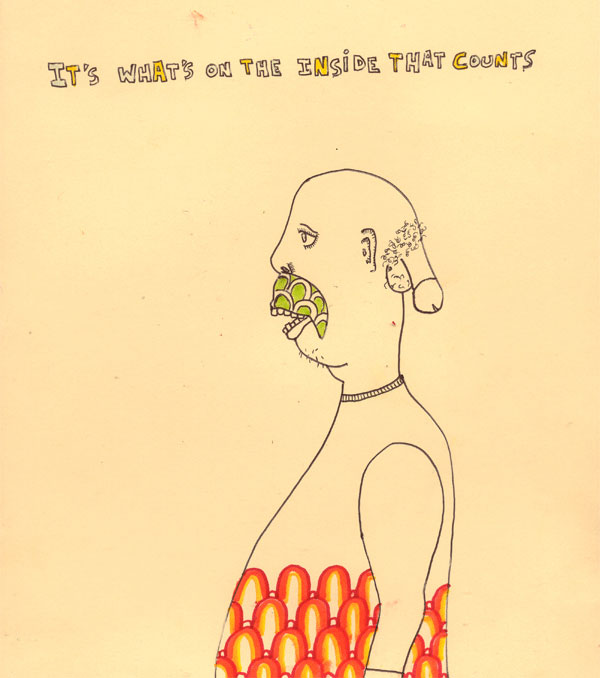 It's what's on the inside that counts